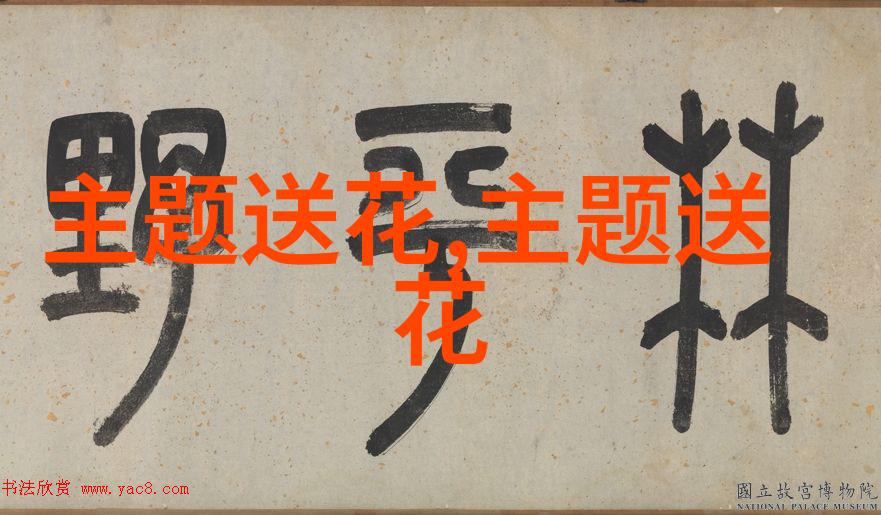 主题送花,主题送
花
林平野
书法欣赏 www.yac8.com
國立故宮博物院
NATIONAL PALACE MUSEUM